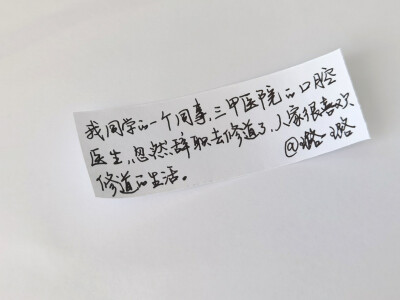 我同学的一个同事，三甲医院的口腔
医生，忽然辞职去修道了，人家很喜欢
修道的生活。
@璐璐